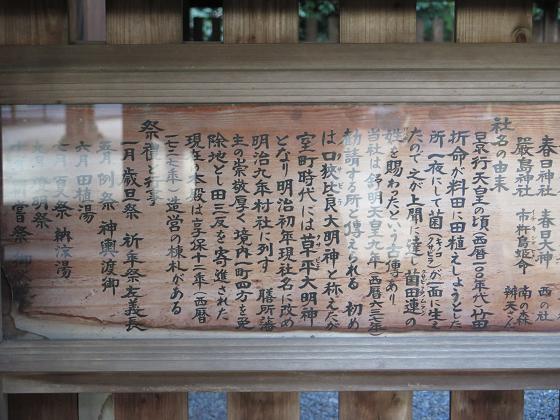 春日神社 春日大神 西の社
厳島神社 市杵島姫命 南の森 辨天さん
社名の由来
景行天皇の頃(西暦一〇〇年代)竹田
折命が料田に田植えしようとした
所一夜にして菌(キノコ クサビラ)が一面に生え
たので之が上聞に達し菌田連の
姓を賜わったという古傳あり
当社は舒明天皇九年(西暦六三七年)
勧請する所と傳えられる 初め
は口狹比良大明神と称えたが
室町時代には草平大明神
となり明治初年現社名に改め
明治九年村社に列す 膳所藩
主の崇敬厚く境内二町四方を免
除地とし田二反を寄進された
現在の本殿は享保十二年(西暦
一七二七年)造営の棟札がある
祭禮と行事
一月 歳旦祭 祈年祭 左義長
五月 例祭 神輿渡御
六月 田植湯
七月 百八祭 納涼湯